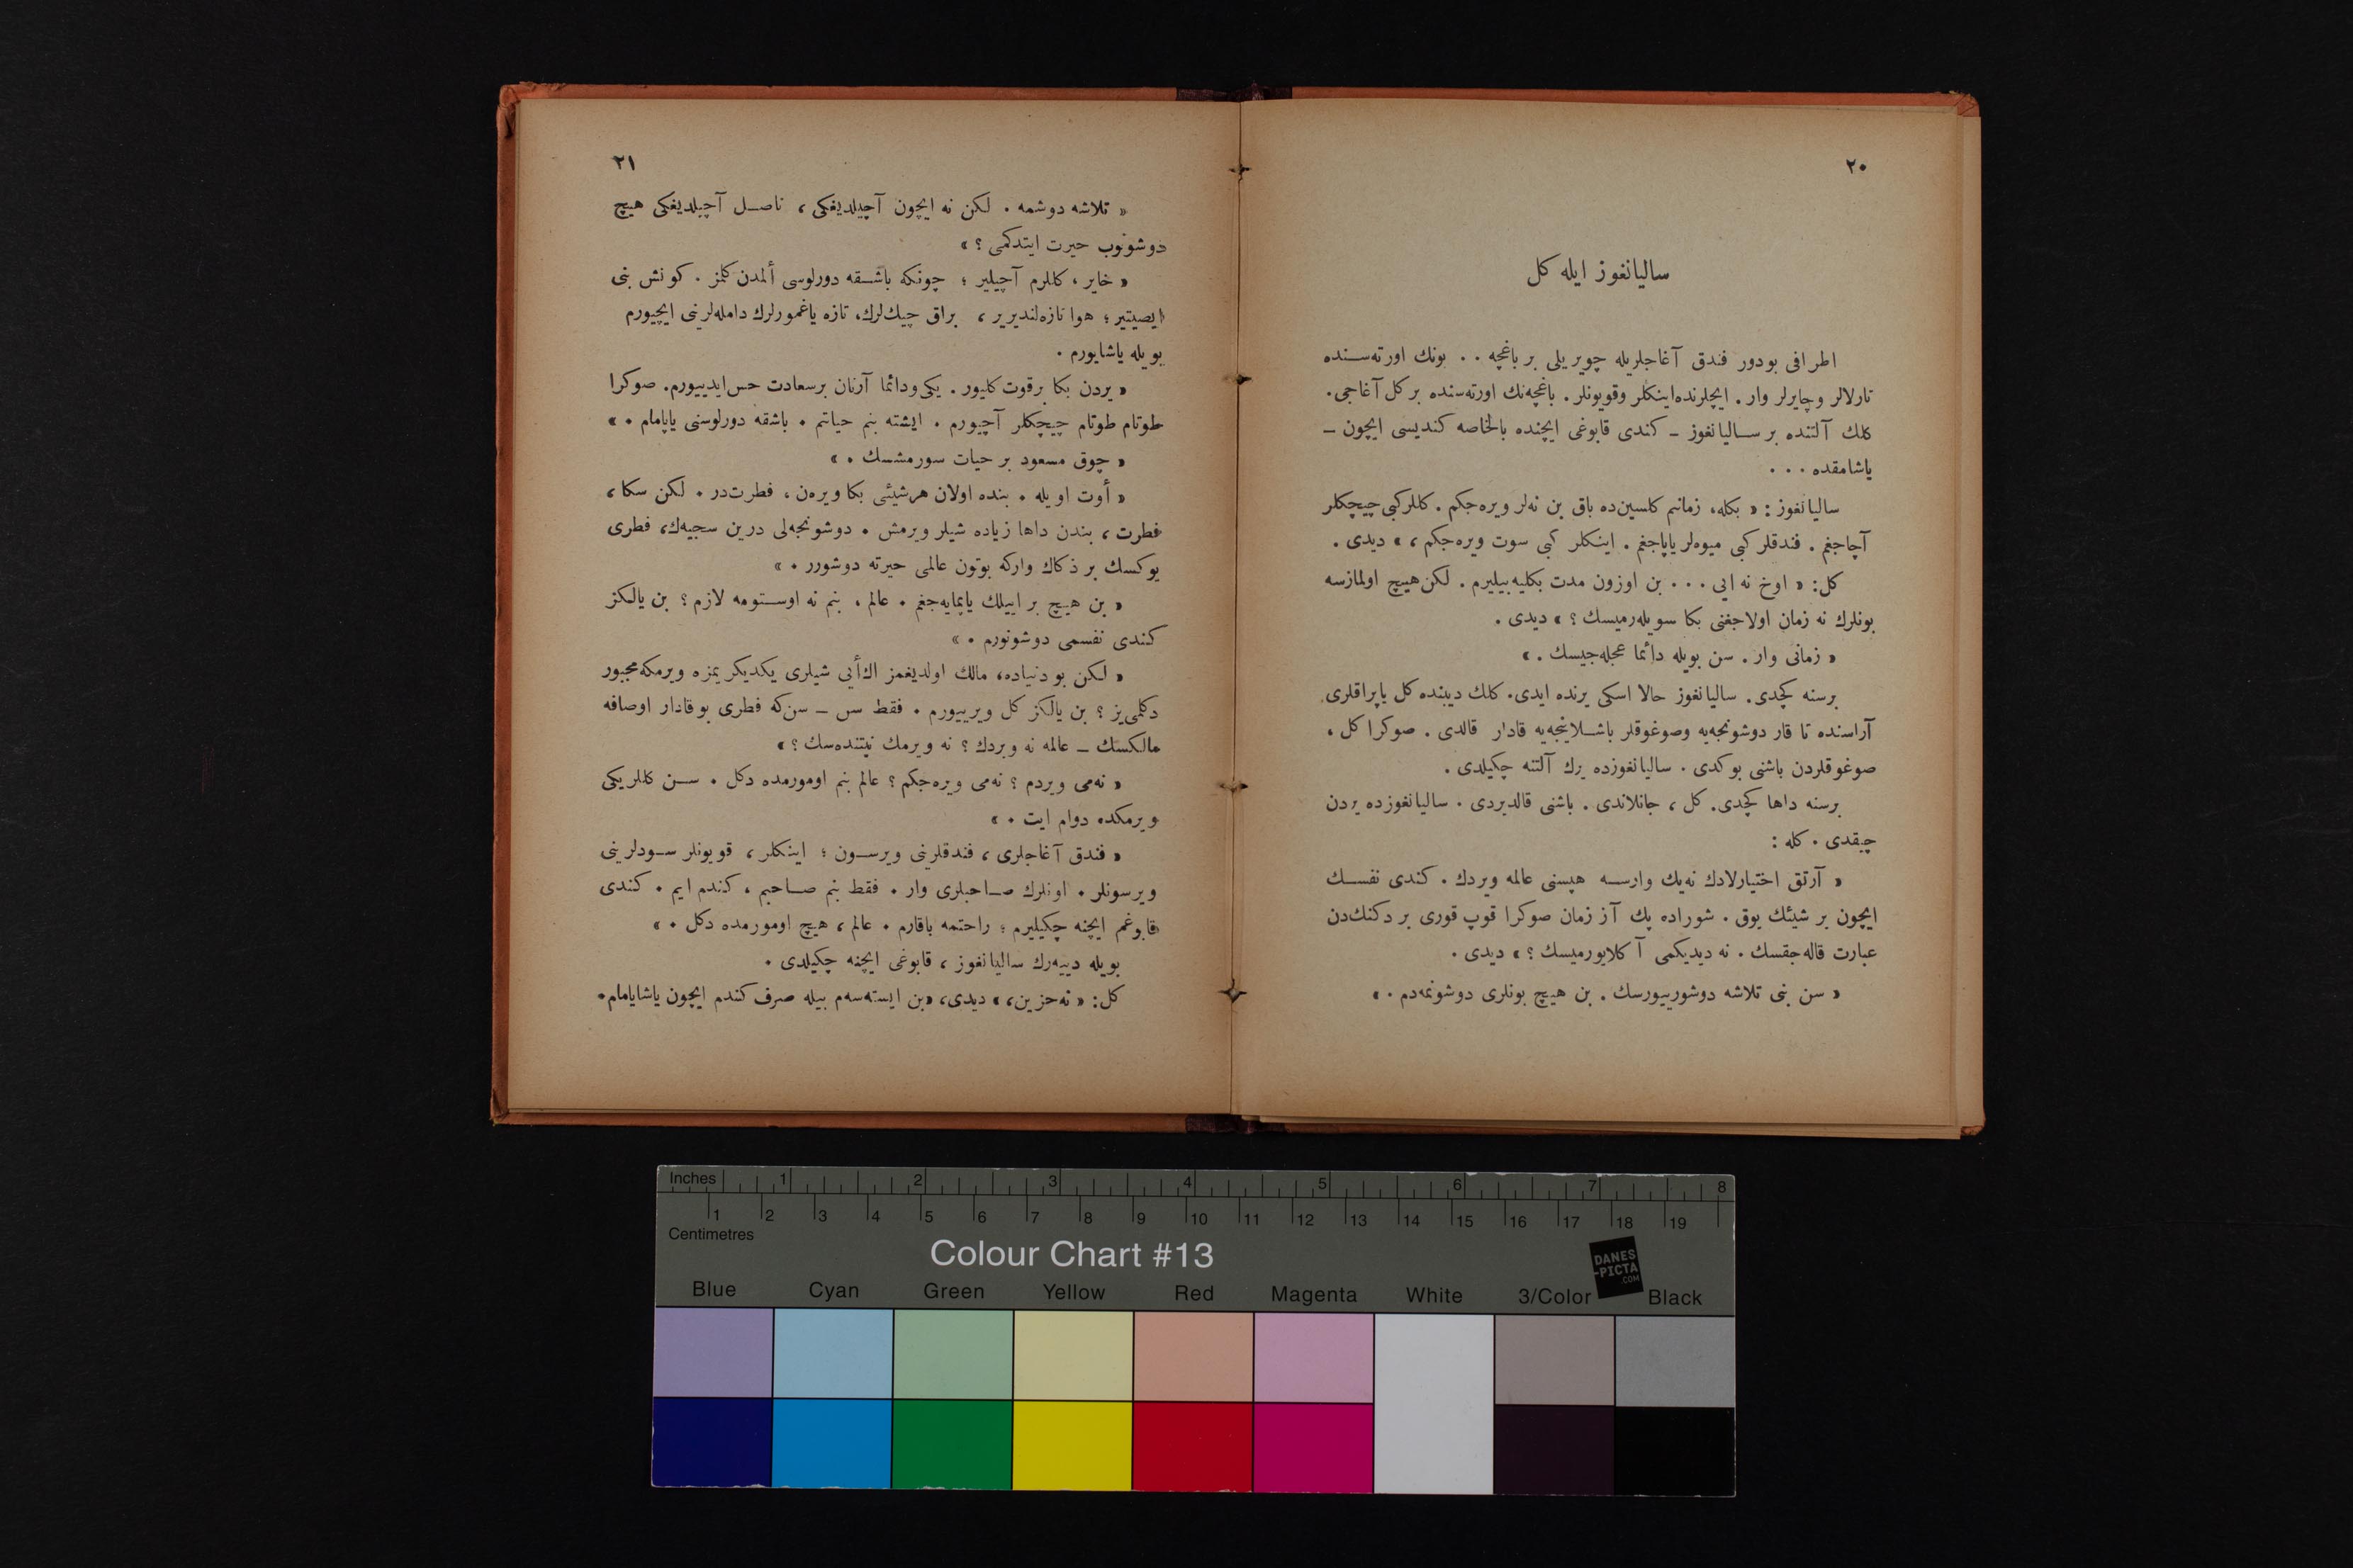 ٢٠
ساليانغوز ايله كل
اطرافی بودور فندق آغاجلريله چويريلی بر باغچه . . بونك اورته‌سنده
تارلالر وچايرلر وار . ايچلرنده اينكلر وقويونلر . باغچه‌نك اورته‌سنده بر كل آغاجی .
كلك آلتنده بر ساليانغوز ـ كندی قابوغی ايچنده بالخاصه كنديسی ايچون ـ
ياشامقده . . .
ساليانغوز : « بكله، زمانم كلسين ده باق بن نه‌لر ويره‌جكم . كللر كبی چيچكلر
آچاجغم . فندقلر كبی ميوه‌لر ياپاجغم . اينكلر كبی سوت ويره‌جكم ، » ديدی .
كل : « اوخ نه ایی . . . بن اوزون مدت بكليه‌بيليرم . لكن هيچ اولمازسه
بونلرك نه زمان اولاجغنی بكا سويله‌رميسك ؟ » ديدی .
« زمانی وار . سن بويله دائما عجله‌جيسك . »
برسنه كچدی . ساليانغوز حالا اسكی يرنده ايدی . كلك ديبنده كل ياپراقلری
آراسنده تا قار دوشونجه‌يه وصوغوقلر باشلاينجه‌يه قادار قالدی . صوكرا كل ،
صوغوقلردن باشنی بوكدی . ساليانغوزده يرك آلتنه چكيلدی .
برسنه داها كچدی . كل ، جانلاندی . باشنی قالديردی . ساليانغوزده يردن
چيقدی . كله :
« آرتق اختيارلادك نه‌يك وارسه هپسنی عالمه ويردك . كندی نفسك
ايچون بر شيئك يوق . شوراده پك آز زمان صوكرا قوپ قوری بر دكنك‌دن
عبارت قاله‌جقسك . نه ديديكمی آكلايورميسك ؟ » ديدی .
« سن بنی تلاشه دوشورييورسك . بن هيچ بونلری دوشونمه‌دم . »
٢١
« تلاشه دوشمه . لكن نه ايچون آچيلديغكی ، ناصل آچيلديغكی هيچ
دوشونوب حيرت ايتدكمی ؟ »
« خاير ، كللرم آچيلير ؛ چونكه باشقه دورلوسی ألمدن كلمز . كونش بنی
ايصيتير ؛ هوا تازه‌لنديرير ، براق چيك‌لرك، تازه ياغمورلرك دامله‌لرينی ايچيورم
بويله ياشايورم .
« يردن بكا برقوت كليور . يكی ودائما آرتان برسعادت حس‌ايدييورم. صوكرا
طوتام طوتام چيچكلر آچيورم . ايشته بنم حياتم . باشقه دورلوسنی ياپامام . »
« چوق مسعود بر حيات سورمشسك . »
« أوت اويله . بنده اولان هرشيئی بكا ويره‌ن ، فطرت‌در . لكن سكا ،
فطرت ، بندن داها زياده شيلر ويرمش . دوشونجه‌لی درين سجيه‌ك، فطری
يوكسك بر ذكاك واركه بوتون عالمی حيرته دوشورر . »
« بن هيچ بر اييلك ياپمايه‌جغم . عالم ، بنم نه اوستومه لازم ؟ بن يالكز
كندی نفسمی دوشونورم . »
« لكن بو دنياده، مالك اولديغمز اك‌أیی شيلری يكديكريمزه ويرمكه مجبور
دكلمی‌يز ؟ بن يالكز كل ويرييورم . فقط سن ـ سن‌كه فطری بوقادار اوصافه
مالكسك ـ عالمه نه ويردك ؟ نه ويرمك نيتنده‌سك ؟ »
« نه‌می ويردم ؟ نه‌می ويره‌جكم ؟ عالم بنم اومورمده دكل . سن كللريكی
ويرمكده دوام ايت . »
« فندق آغاجلری ، فندقلرنی ويرسون ؛ اينكلر ، قويونلر سودلرينی
ويرسونلر . اونلرك صاحبلری وار . فقط بنم صاحبم ، كندم ايم . كندی
قابوغم ايچنه چكيليرم ؛ راحتمه باقارم . عالم ، هيچ اومورمده دكل . »
بويله دييه‌رك ساليانغوز ، قابوغی ايچنه چكيلدی .
كل : « نه‌حزين، » ديدی، «بن ايسته‌سه‌م بيله صرف كندم ايچون ياشايامام.
Inches 1 2 3 4 5 6 7 8
1 2 3 4 5 6 7 8 9 10 11 12 13 14 15 16 17 18 19
Centimetres
Colour Chart #13
DANES
-PICTA
.COM
Blue Cyan Green Yellow Red Magenta White 3/Color Black